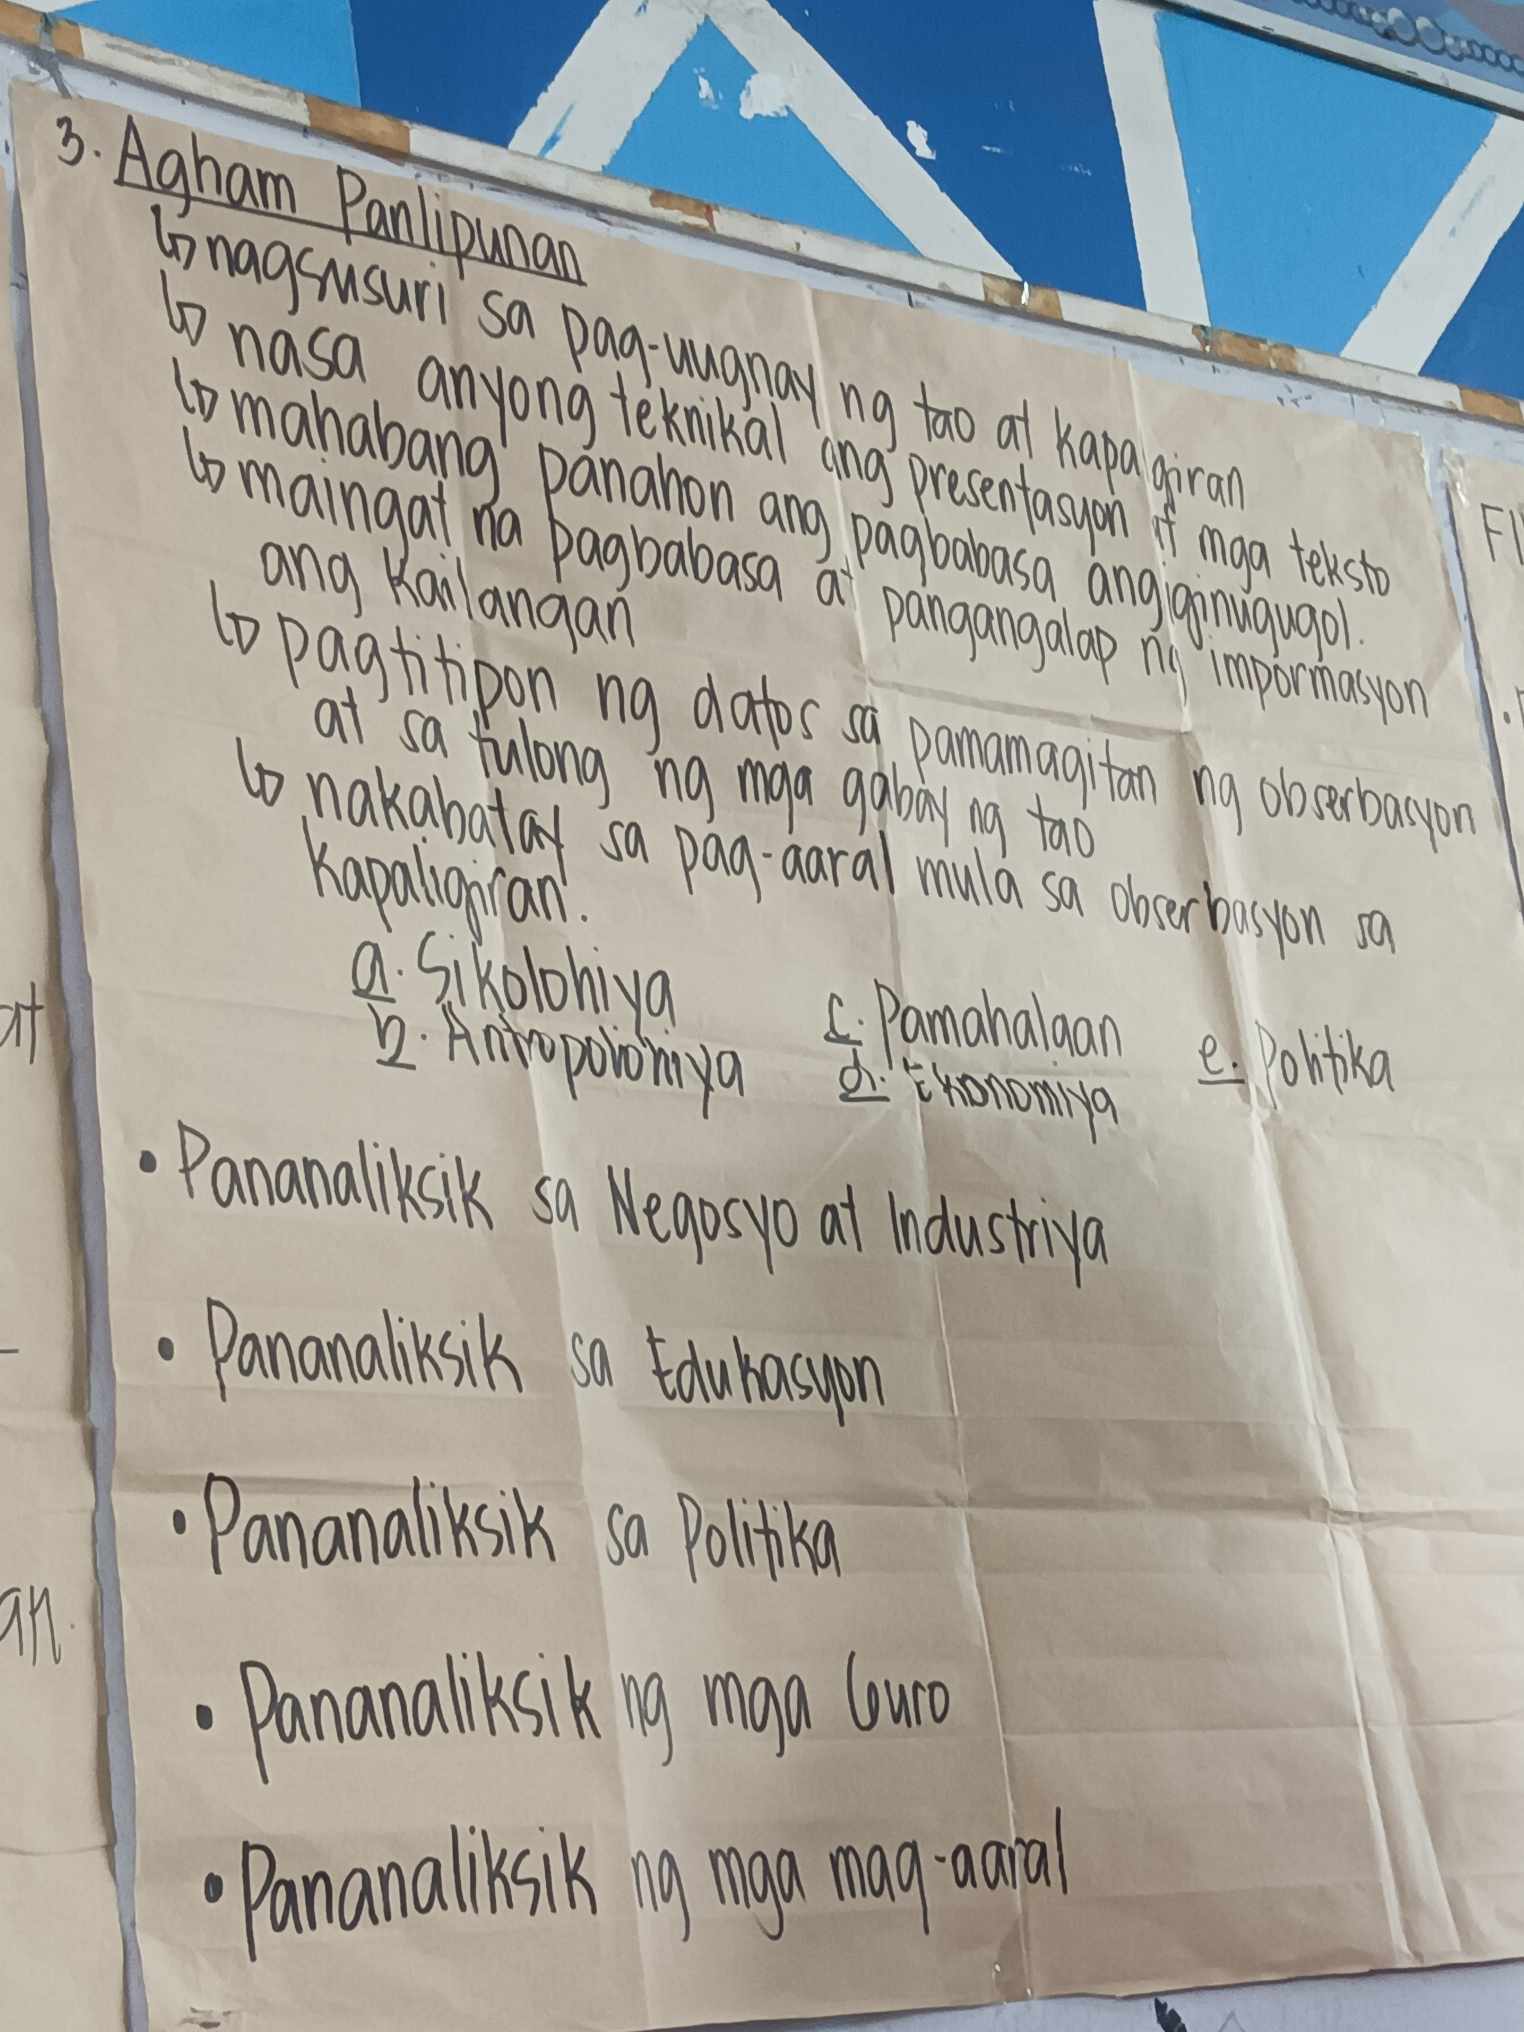 3. Agham Panlipunan
↳ nagsusuri sa pag-uugnay ng tao at kapaligiran
↳ nasa anyong teknikal ang presentasyon at mga teksto
↳ mahabang panahon ang pagbabasa ang iginugugol.
↳ maingat na pagbabasa at pangangalap ng impormasyon
ang kailangan
↳ pagtitipon ng datos sa pamamagitan ng obserbasyon
at sa tulong ng mga gabay ng tao
↳ nakabatay sa pag-aaral mula sa obserbasyon sa
kapaligiran.
a. Sikolohiya
b. Antropolohiya
c. Pamahalaan
d. Ekonomiya
e. Politika
• Pananaliksik sa Negosyo at Industriya
• Pananaliksik sa Edukasyon
• Pananaliksik sa Politika
• Pananaliksik ng mga Guro
• Pananaliksik ng mga mag-aaral
at
an.